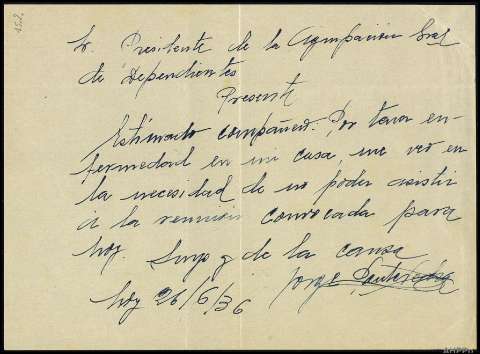 152
Sr. Presidente de la Agrupación Gral
de Dependientes
Presente
Estimado compañero: Por tener en-
fermedad en mi casa, me veo en
la necesidad de no poder asistir
a la reunión convocada para
hoy. Suyo y de la causa
Jorge
hoy 26/6/36